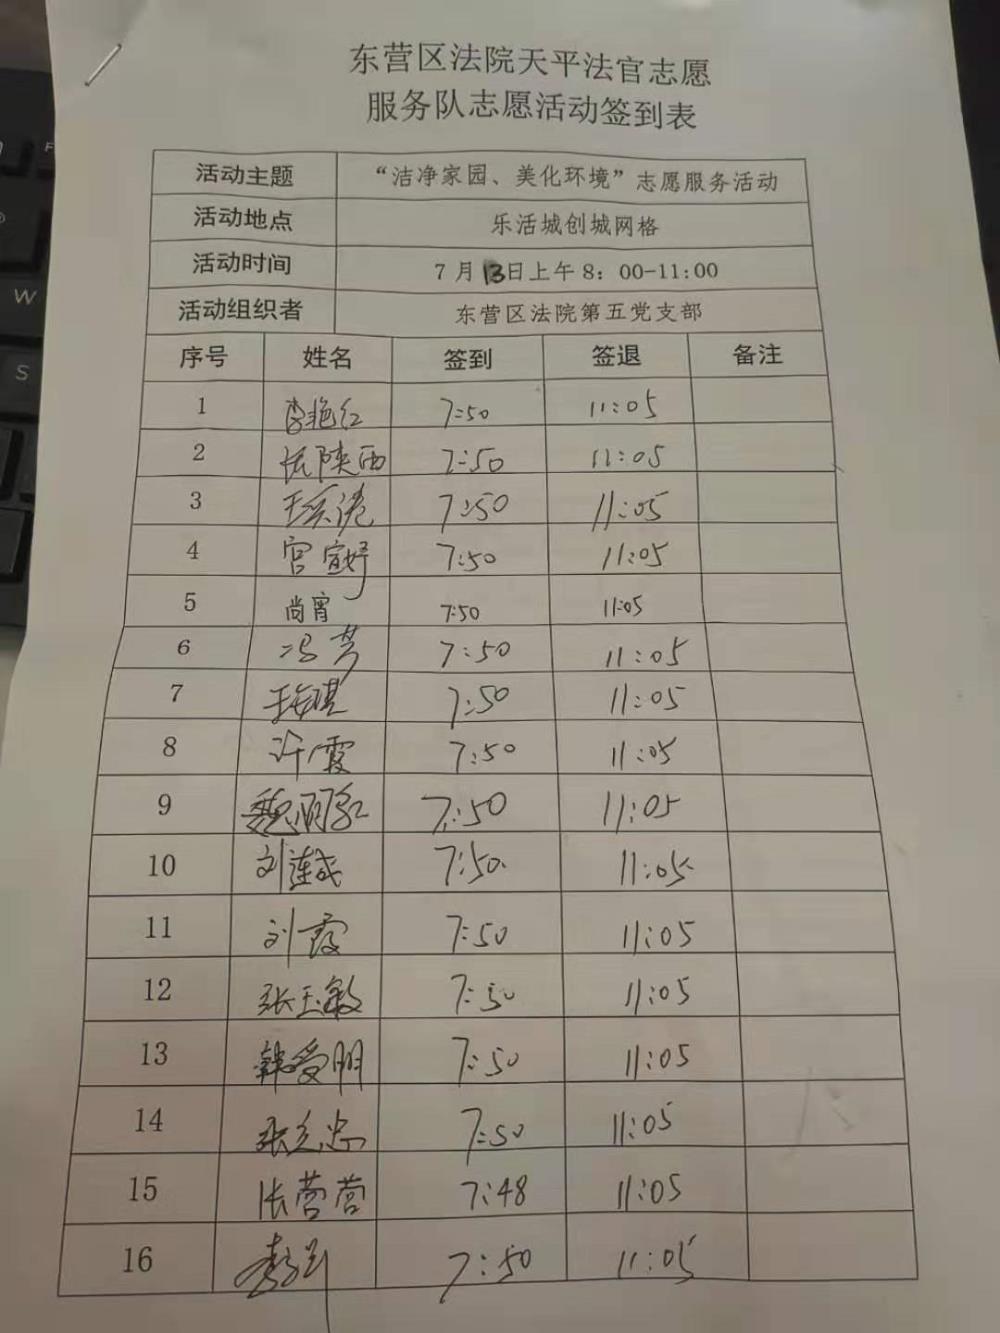 东营区法院天平法官志愿
服务队志愿活动签到表
活动主题 “洁净家园、美化环境”志愿服务活动
活动地点 乐活城创城网格
活动时间 7月13日上午8:00-11:00
活动组织者 东营区法院第五党支部
序号 姓名 签到 签退 备注
1 李艳红 7:50 11:05
2 陕西 7:50 11:05
3 7:50 11:05
4 宫宣妤 7:50 11:05
5 尚宵 7:50 11:05
6 冯芳 7:50 11:05
7 7:50 11:05
8 许霞 7:50 11:05
9 7:50 11:05
10 刘莲成 7:50 11:05
11 刘霞 7:50 11:05
12 张玉敏 7:50 11:05
13 韩爱朋 7:50 11:05
14 7:50 11:05
15 张营营 7:48 11:05
16 7:50 11:05